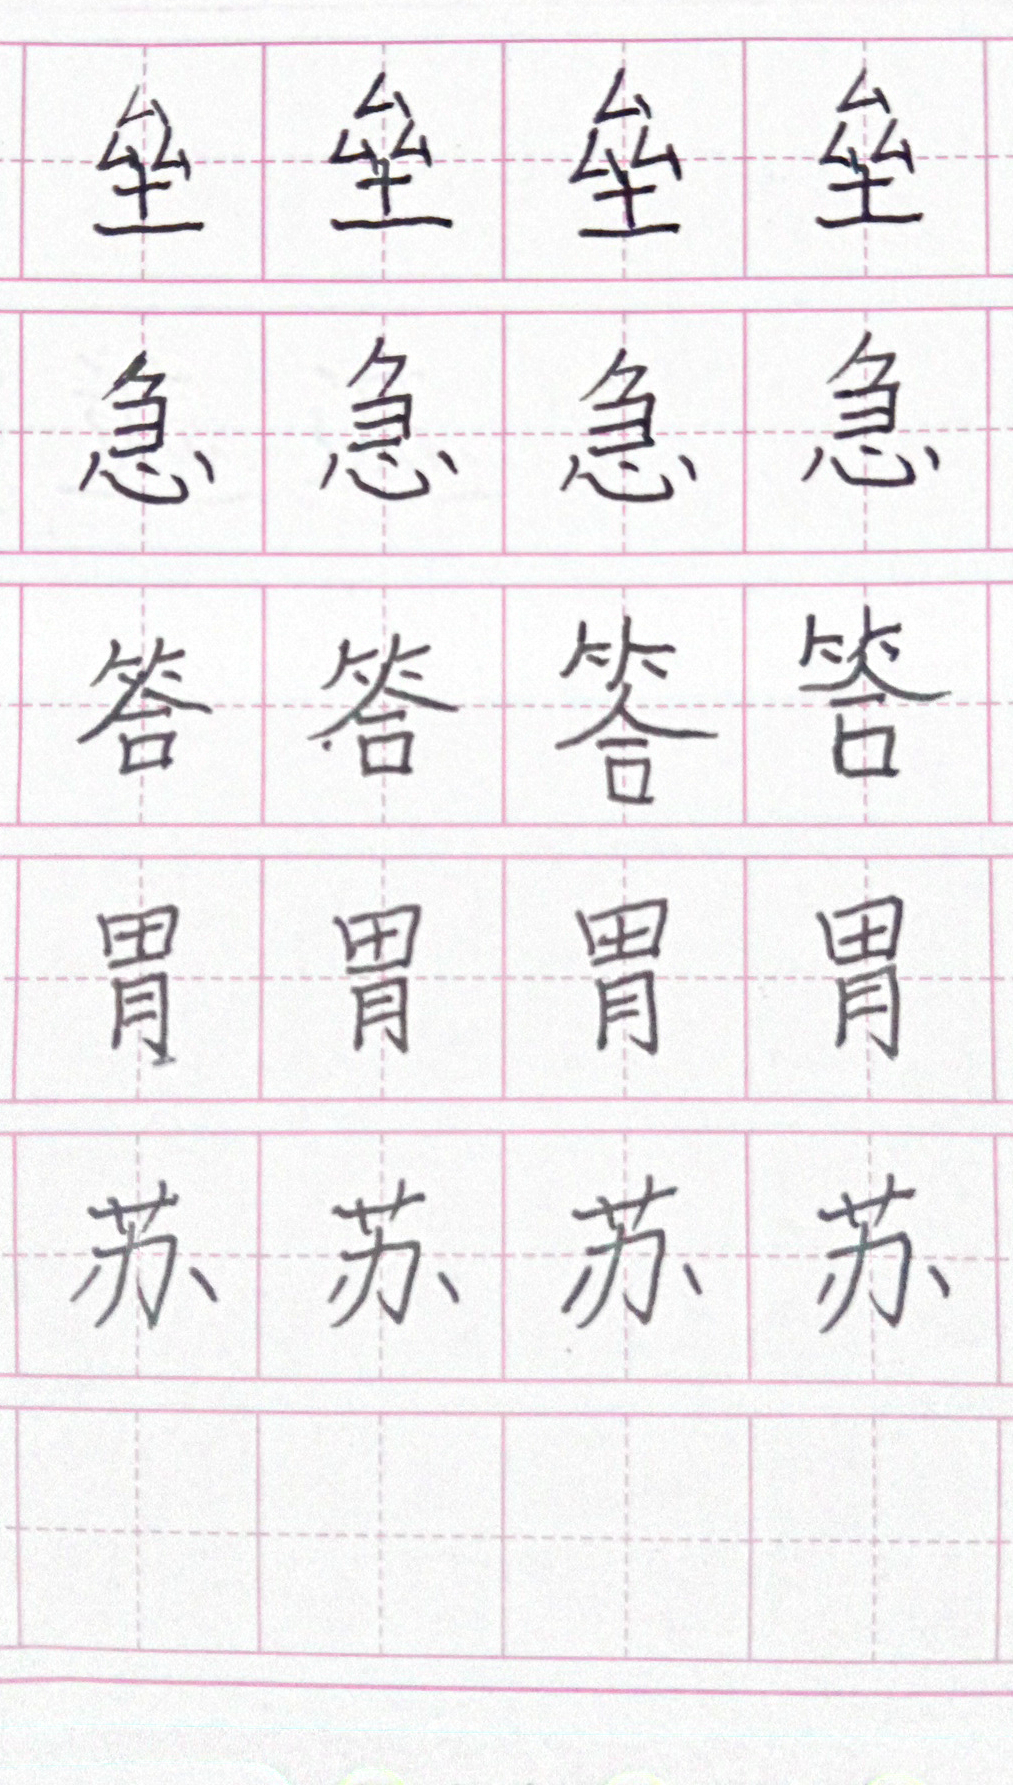 垒垒垒垒
急急急急
答答答答
胃胃胃胃
苏苏苏苏